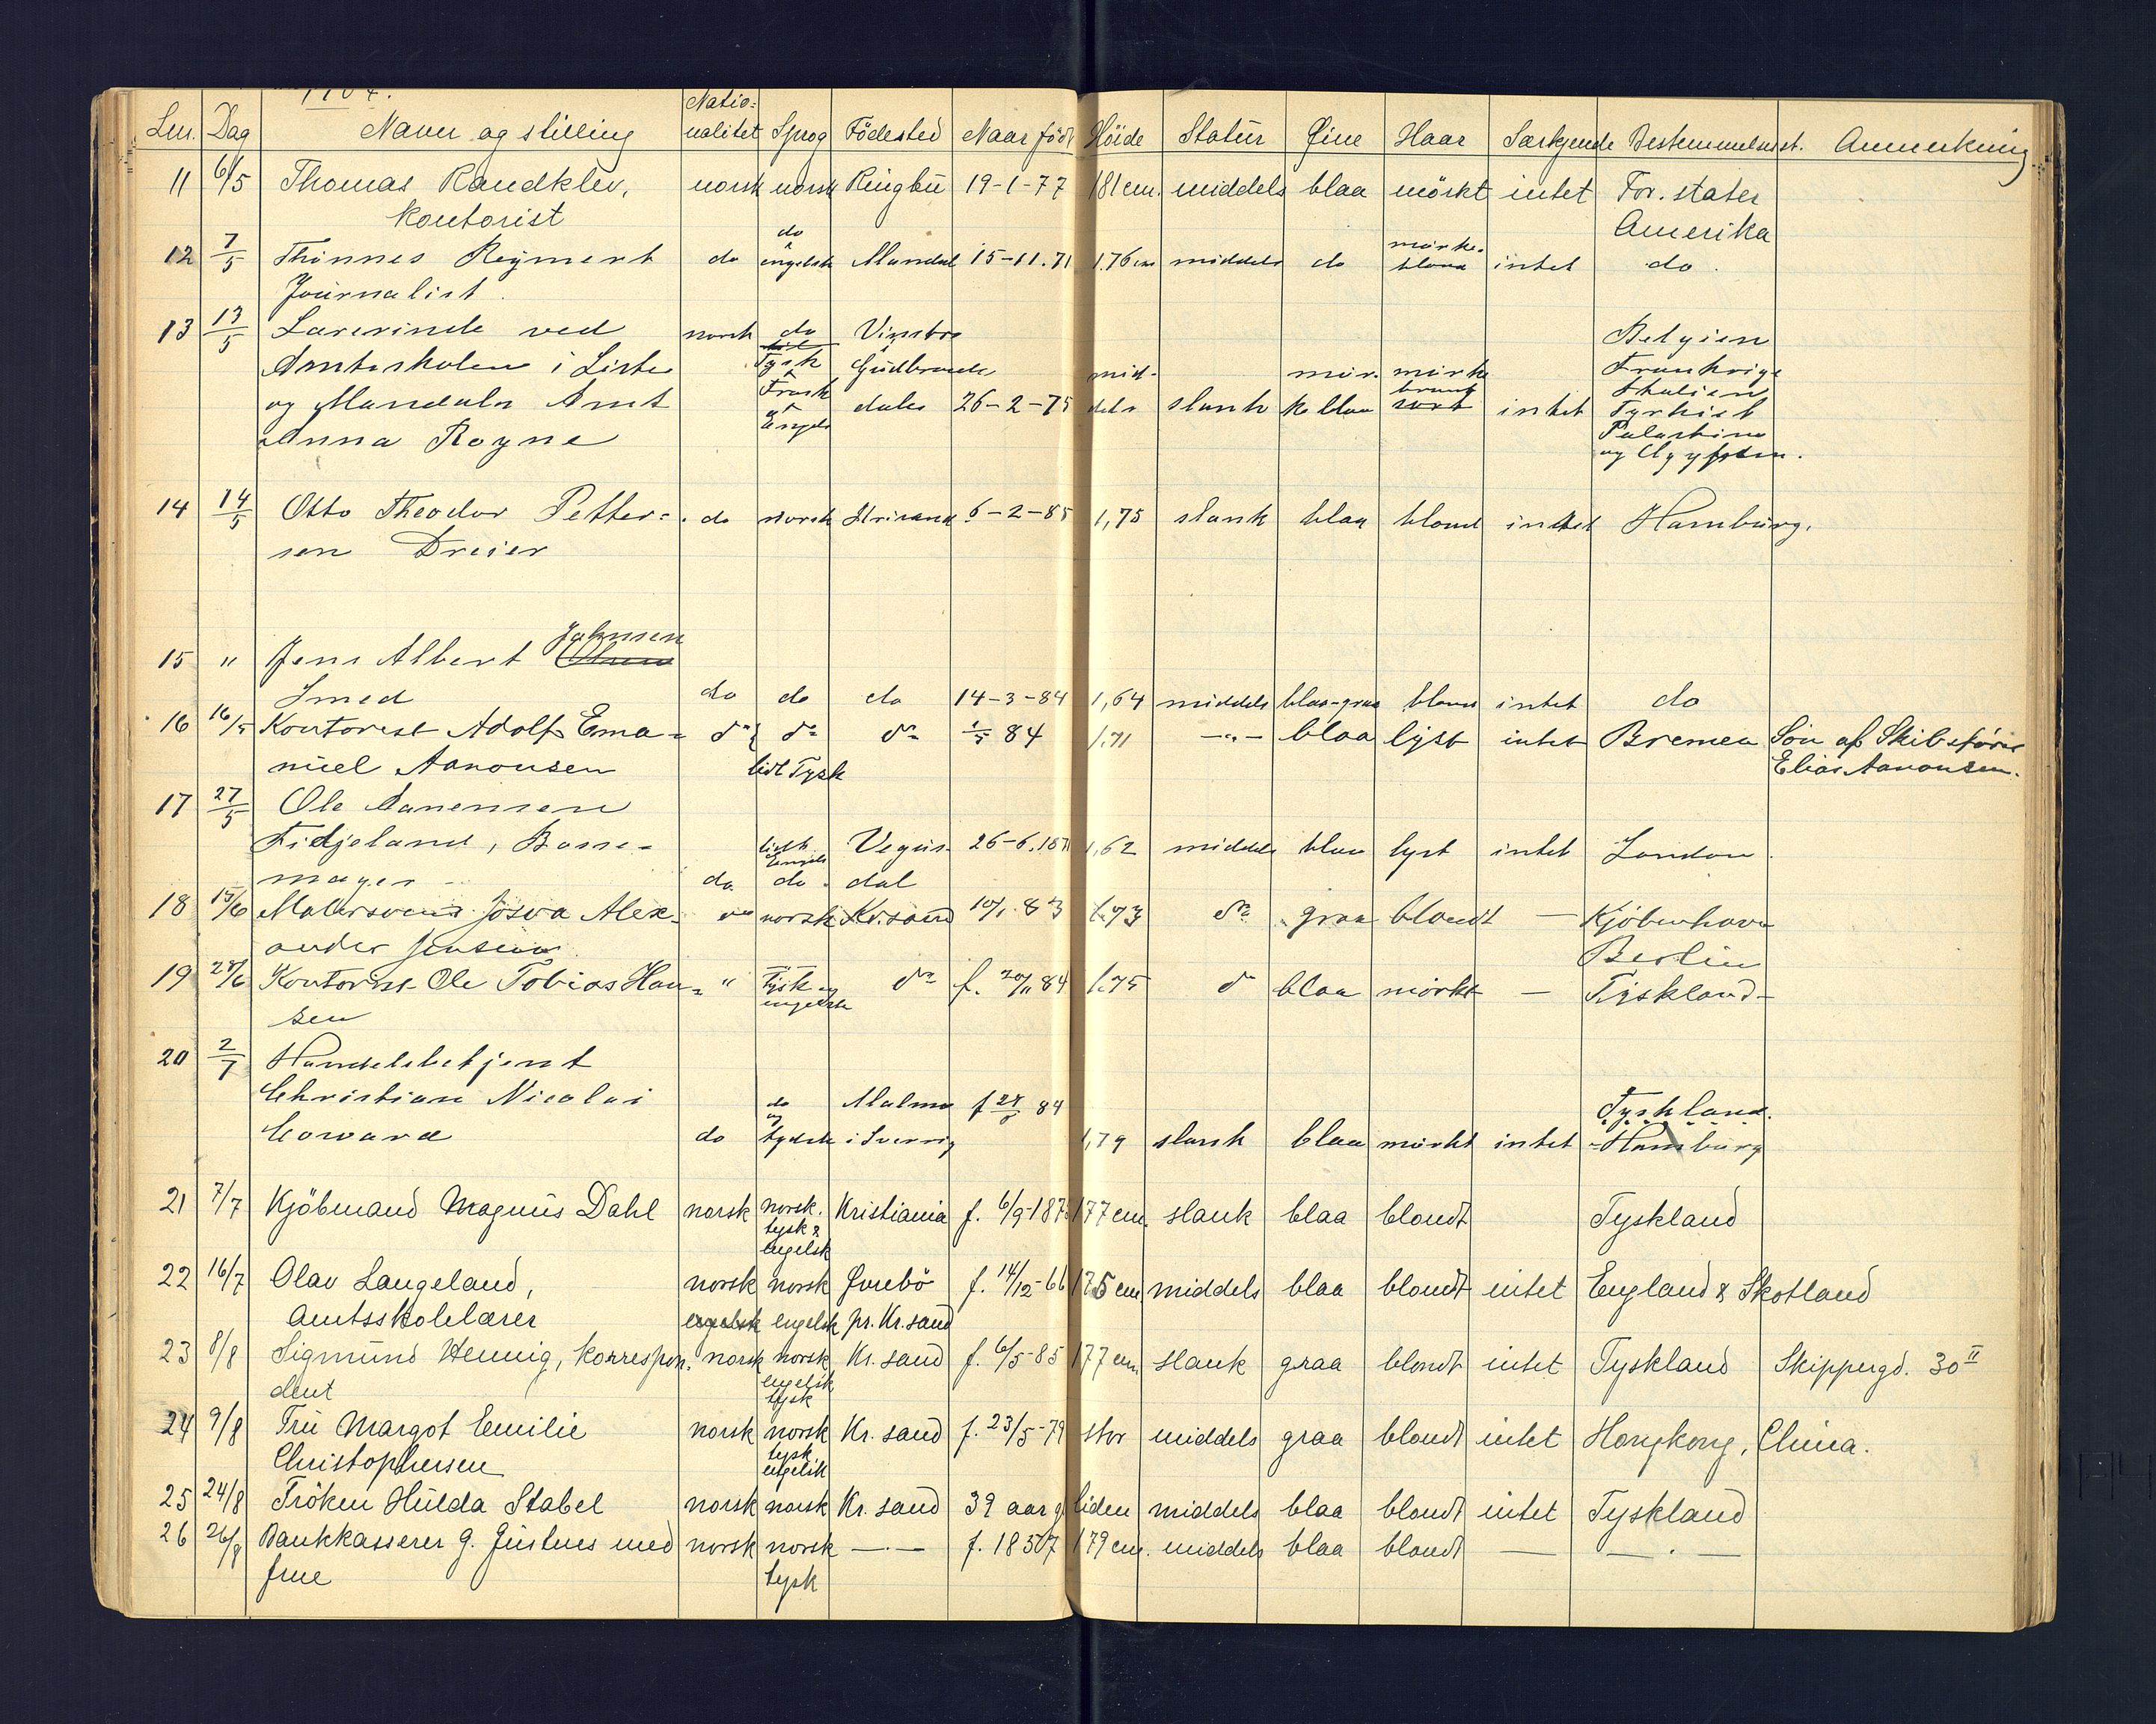 1904.
Lnr. Dag Navn og stilling Natio= nalitet Sprog Födested Naar född Höide Statur Øine Haar Særkjende Bestemmelsesst. Anmerkning
11 6/5 Thomas Randklev, norsk norsk Ringbu 19-1-77 181 cm. middels blaa mörkt intet For. stater
Kontorist Amerika
12 7/5 Thönnes Reymert do do & engelsk Mandal 15-11.71 1.76 cm middels do mørke- blond intet do.
Journalist.
13 13/5 Lærerinde ved norsk do Belgien
Amtsskolen i Lister Tysk Gudbrands mid- mør- mørke Frankrige
og Mandals Amt Fransk og Engels dalen 26-2-75 dels slank keblaa brunt sort intet Italien Tyrkiet
Anna Røgne Palæstina
og Ægypten.
14 14/5 Otto Theodor Petter= do norsk Krisand 6-2-85 1,75 slank blaa blond intet Hamburg.
sen Dreier
15 " Jens Albert Johnsen Olsen
Smed do do do 14-3-84 1,64 middels blaa-graa blond intet do
16 16/5 Kontorist Adolf Ema= do do do 1/5 84 1.71 -"- blaa lyst intet Bremen Sön af Skibsförer
nuel Aanonsen lidt Tysk Elias Aanonsen.
17 27/5 Ole Aanensen
Fidjeland, Børse- lidt Engels Vegus- 26-6.187 1,62 middels blaa lyst intet London.
mager do. do. dal
18 15/6 Malersvend Josva Alex- do norsk Kr.sand 10/1 83 1.73 do graa blondt — Kjöbenhavn
ander Jensen Berlin
19 28/6 Kontorist Ole Tobias Han= " Tysk og engelsk do f. 20/11 84 1.75 do blaa mörkt — Tyskland-
sen
20 2/7 Handelsbetjent
Christian Nicolai do og Malmø f 28/8 84 Tyskland.
Coward do tydsk i Sverrig 1,79 slank blaa mørkt intet Hamburg
21 7/7 Kjöbmand Magnus Dahl norsk norsk. tysk & engelsk Kristiania f. 6/9-187 177 cm. slank blaa blondt Tyskland
22 16/7 Olav Langeland, norsk norsk Øvrebö f. 14/12-66 175 cm middels blaa blondt intet England & Skotland
Amtsskolelærer engelsk engelsk pr. Kr.sand
23 8/8 Sigmund Hennig, korrespon- norsk norsk Kr. sand f. 6/5-85 177 cm slank graa blondt intet Tyskland Skippergd. 30 II
dent engelsk tysk
24 9/8 Fru Margot Emilie norsk norsk Kr. sand f. 23/5-79 stor middels graa blondt intet Hongkong, China.
Christophersen tysk engelsk
25 24/8 Fröken Hulda Stabel norsk norsk Kr. sand 39 aar g. liden middels blaa blondt intet Tyskland
26 26/8 Bankkasserer G. Justnes med norsk norsk —·— f. 1857 179 cm. middels blaa blondt — —·—
frue tysk